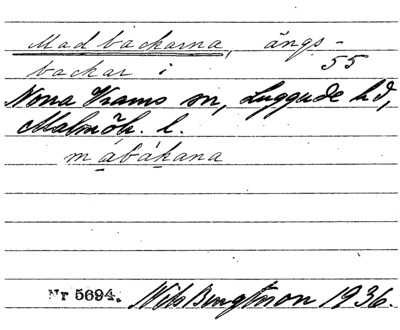 Madbackarna, ängs-
55
backar i
Norra Vrams sn, Luggude hd,
Malmöh. l.
mábákana
Nr 5694. Nils Bengtsson 1936.